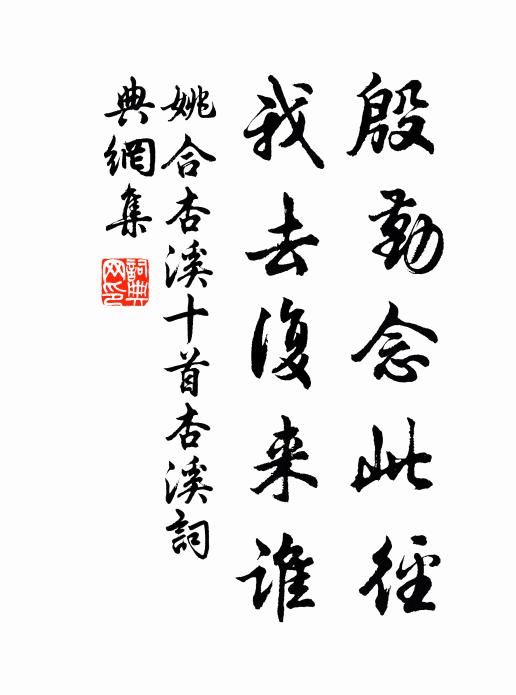 殷勤念此徑
我去復来誰
姚合杏溪十首杏溪詞
典網集
詞典
网印